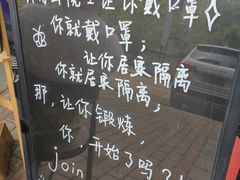 院士让你戴口罩
你就戴口罩；
让你居家隔离
你就居家隔离；
那，让你锻炼，
你，开始了吗？
join